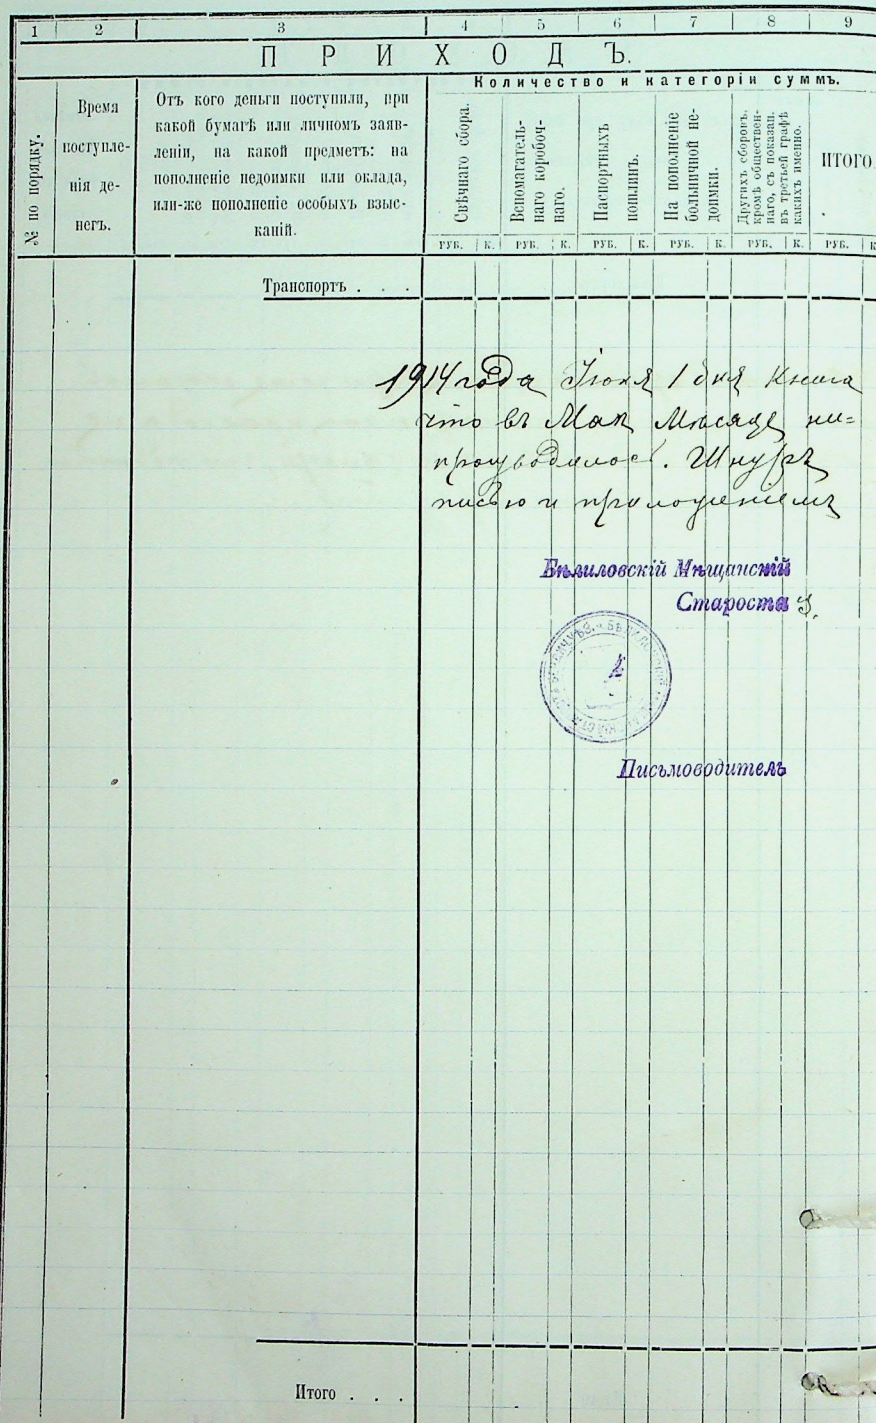 1 2 3 4 5 6 7 8 9
ПРИХОДЪ.
Количество и категоріи суммъ.
№ по порядку.
Время
поступле-
нія де-
негъ.
Отъ кого деньги поступили, при
какой бумагѣ или личномъ заяв-
леніи, на какой предметъ: на
пополненіе недоимки или оклада,
или-же пополненіе особыхъ взыс-
каній.
Свѣчнаго сбора.
Вспомагатель-
наго коробоч-
наго.
Паспортныхъ
пошлинъ.
На пополненіе
больничной не-
доимки.
Другихъ сборовъ,
кромѣ обществен-
наго, съ показан.
въ третьей графѣ
какихъ именно.
ИТОГО
РУБ. К. РУБ. К. РУБ. К. РУБ. К. РУБ. К. РУБ. К
Транспортъ . . .
1914 года Іюня 1 дня Книга
что въ Маѣ Мѣсяцѣ ни=
производилось. Шнуръ
писью и приложеніемъ
Бѣлиловскій Мѣщанскій
Староста
Письмоводитель
Итого . . .